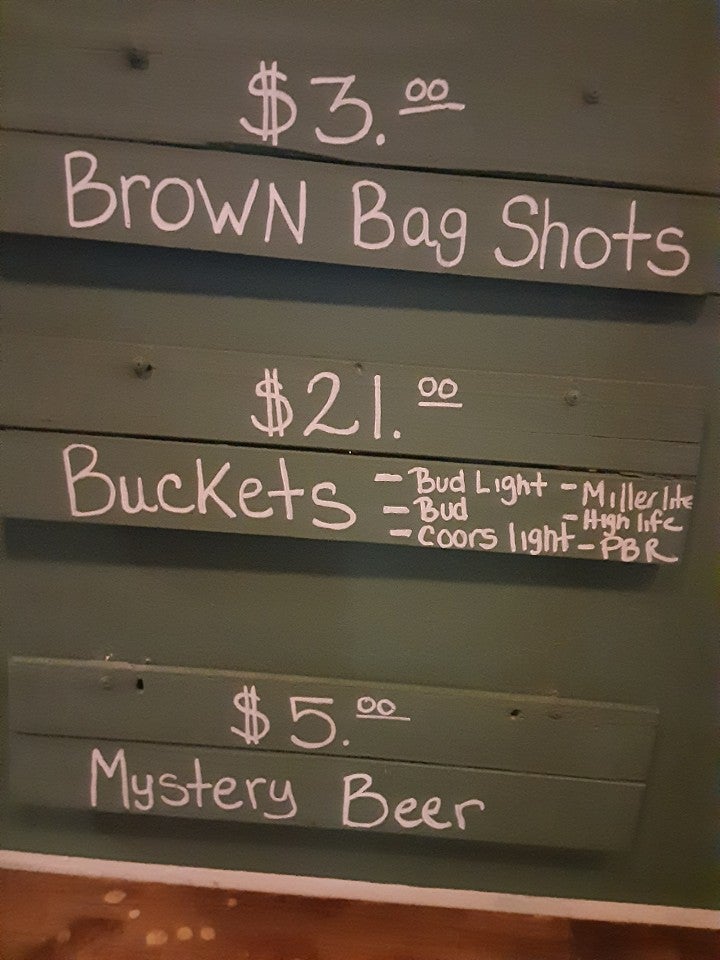 $3.00
Brown Bag Shots
$21.00
Buckets
- Bud Light - Miller lite
- Bud - High life
- Coors light - PBR
$5.00
Mystery Beer